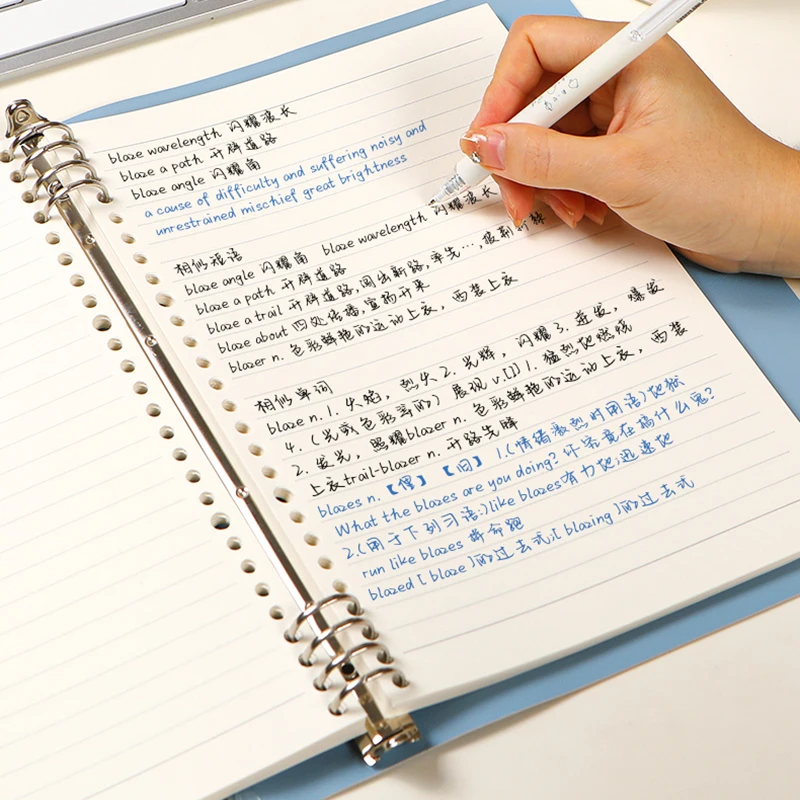 blaze wavelength 闪耀波长
blaze a path 开辟道路
blaze angle 闪耀角
a cause of difficulty and suffering noisy and
unrestrained mischief great brightness
相似短语
blaze angle 闪耀角 blaze wavelength 闪耀波长
blaze a path 开辟道路
blaze a trail 开辟道路,闯出新路,率先…,披荆斩棘
blaze about 四处传播,宣扬开来
blazer n. 色彩鲜艳的运动上衣,西装上衣
相似单词
blaze n. 1. 火焰,烈火 2. 光辉,闪耀 3. 迸发,爆发
4. (光或色彩等的) 展现 v.[I] 1. 猛烈地燃烧
2. 发光,照耀 blazer n. 色彩鲜艳的运动上衣,西装
上衣 trail-blazer n. 开路先锋
blazes n. 【俚】【旧】 1.(情绪激烈时用语)地狱
What the blazes are you doing? 你究竟在搞什么鬼?
2.(用于下列习语:)like blazes有力地;迅速地
run like blazes 拼命跑
blazed [ blaze ]的过去式;[ blazing ]的过去式